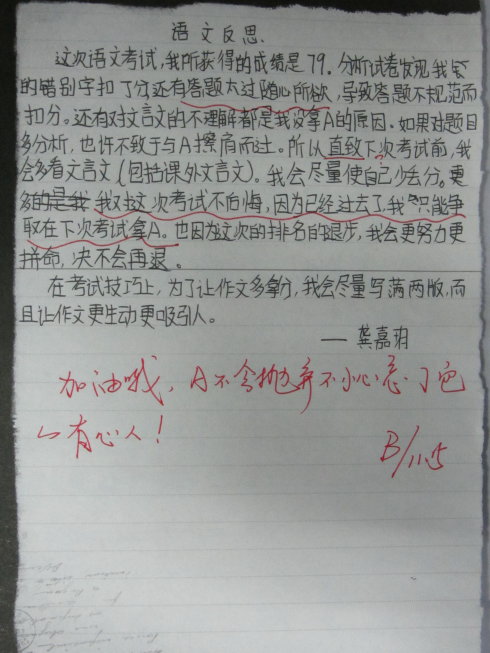 语文反思
这次语文考试,我所获得的成绩是79.分析试卷发现我
的错别字扣了分,还有答题太过随心所欲,导致答题不规范而
扣分。还有对文言文的不理解都是我没拿A的原因.如果对题目
多分析,也许不致于与A擦肩而过。所以直致下次考试前,我
会多看文言文(包括课外文言文)。我会尽量使自己少丢分。更
我对这次考试不后悔,因为已经过去了,我只能争
取在下次考试拿A。也因为这次的排名的退步,我会更努力更
拼命,决不会再退。
在考试技巧上,为了让作文多拿分,我会尽量写满两版,而
且让作文更生动更吸引人。
——龚嘉玥
加油哦,A不会抛弃不小心
有心人!
B/11.5